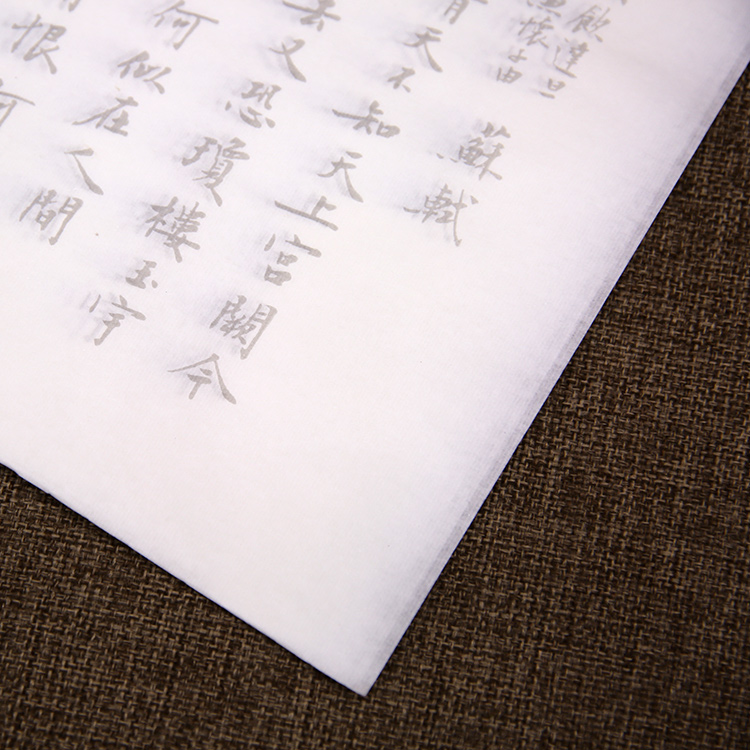 飲達旦
懷子由
蘇軾
青天不知天上宮闕今
去又恐瓊樓玉宇
何似在人間
恨何